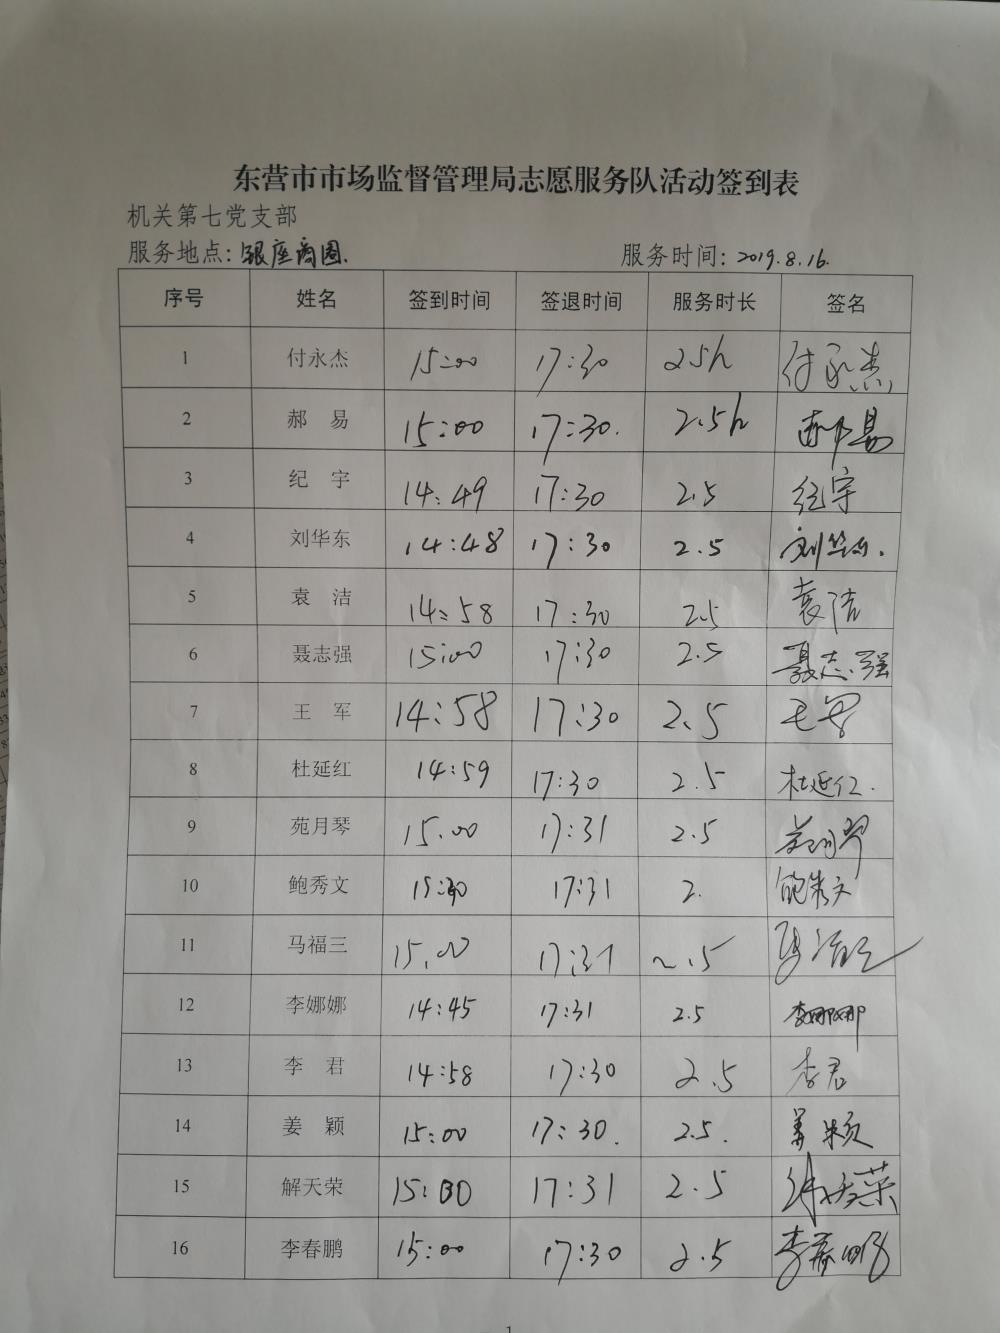 东营市市场监督管理局志愿服务队活动签到表
机关第七党支部
服务地点：银座商圈. 服务时间：2019.8.16.
序号 姓名 签到时间 签退时间 服务时长 签名
1 付永杰 15:00 17:30 2.5h 付永杰
2 郝 易 15:00 17:30. 2.5h 郝易
3 纪 宇 14:49 17:30 2.5 纪宇
4 刘华东 14:48 17:30 2.5 刘华东.
5 袁 洁 14:58 17:30 2.5 袁洁
6 聂志强 15:00 17:30 2.5 聂志强
7 王 军 14:58 17:30 2.5 王军
8 杜延红 14:59 17:30 2.5 杜延红.
9 苑月琴 15.00 17:31 2.5 苑月琴
10 鲍秀文 15:30 17:31 2. 鲍秀文
11 马福三 15.00 17:31 2.5
12 李娜娜 14:45 17:31 2.5 李娜娜
13 李 君 14:58 17:30 2.5 李君
14 姜 颖 15:00 17:30. 2.5. 姜颖
15 解天荣 15:00 17:31 2.5 解天荣
16 李春鹏 15:00 17:30 2.5 李春鹏
1